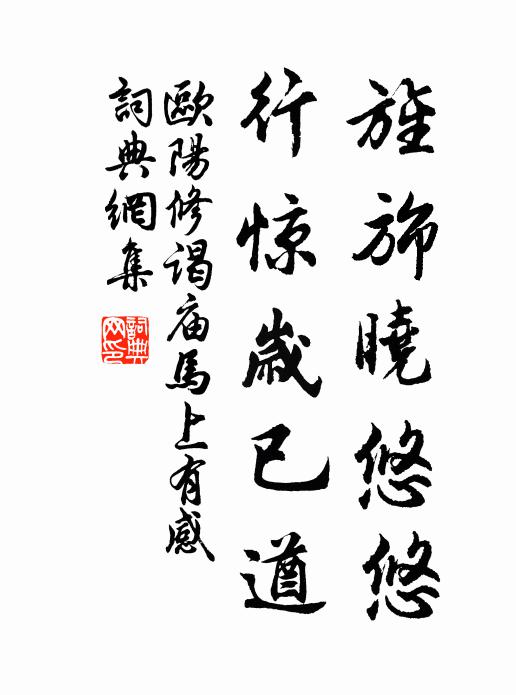 旌旆曉悠悠
行惊歳已遒
歐陽修謁庙馬上有感
詞典網集
詞典網印